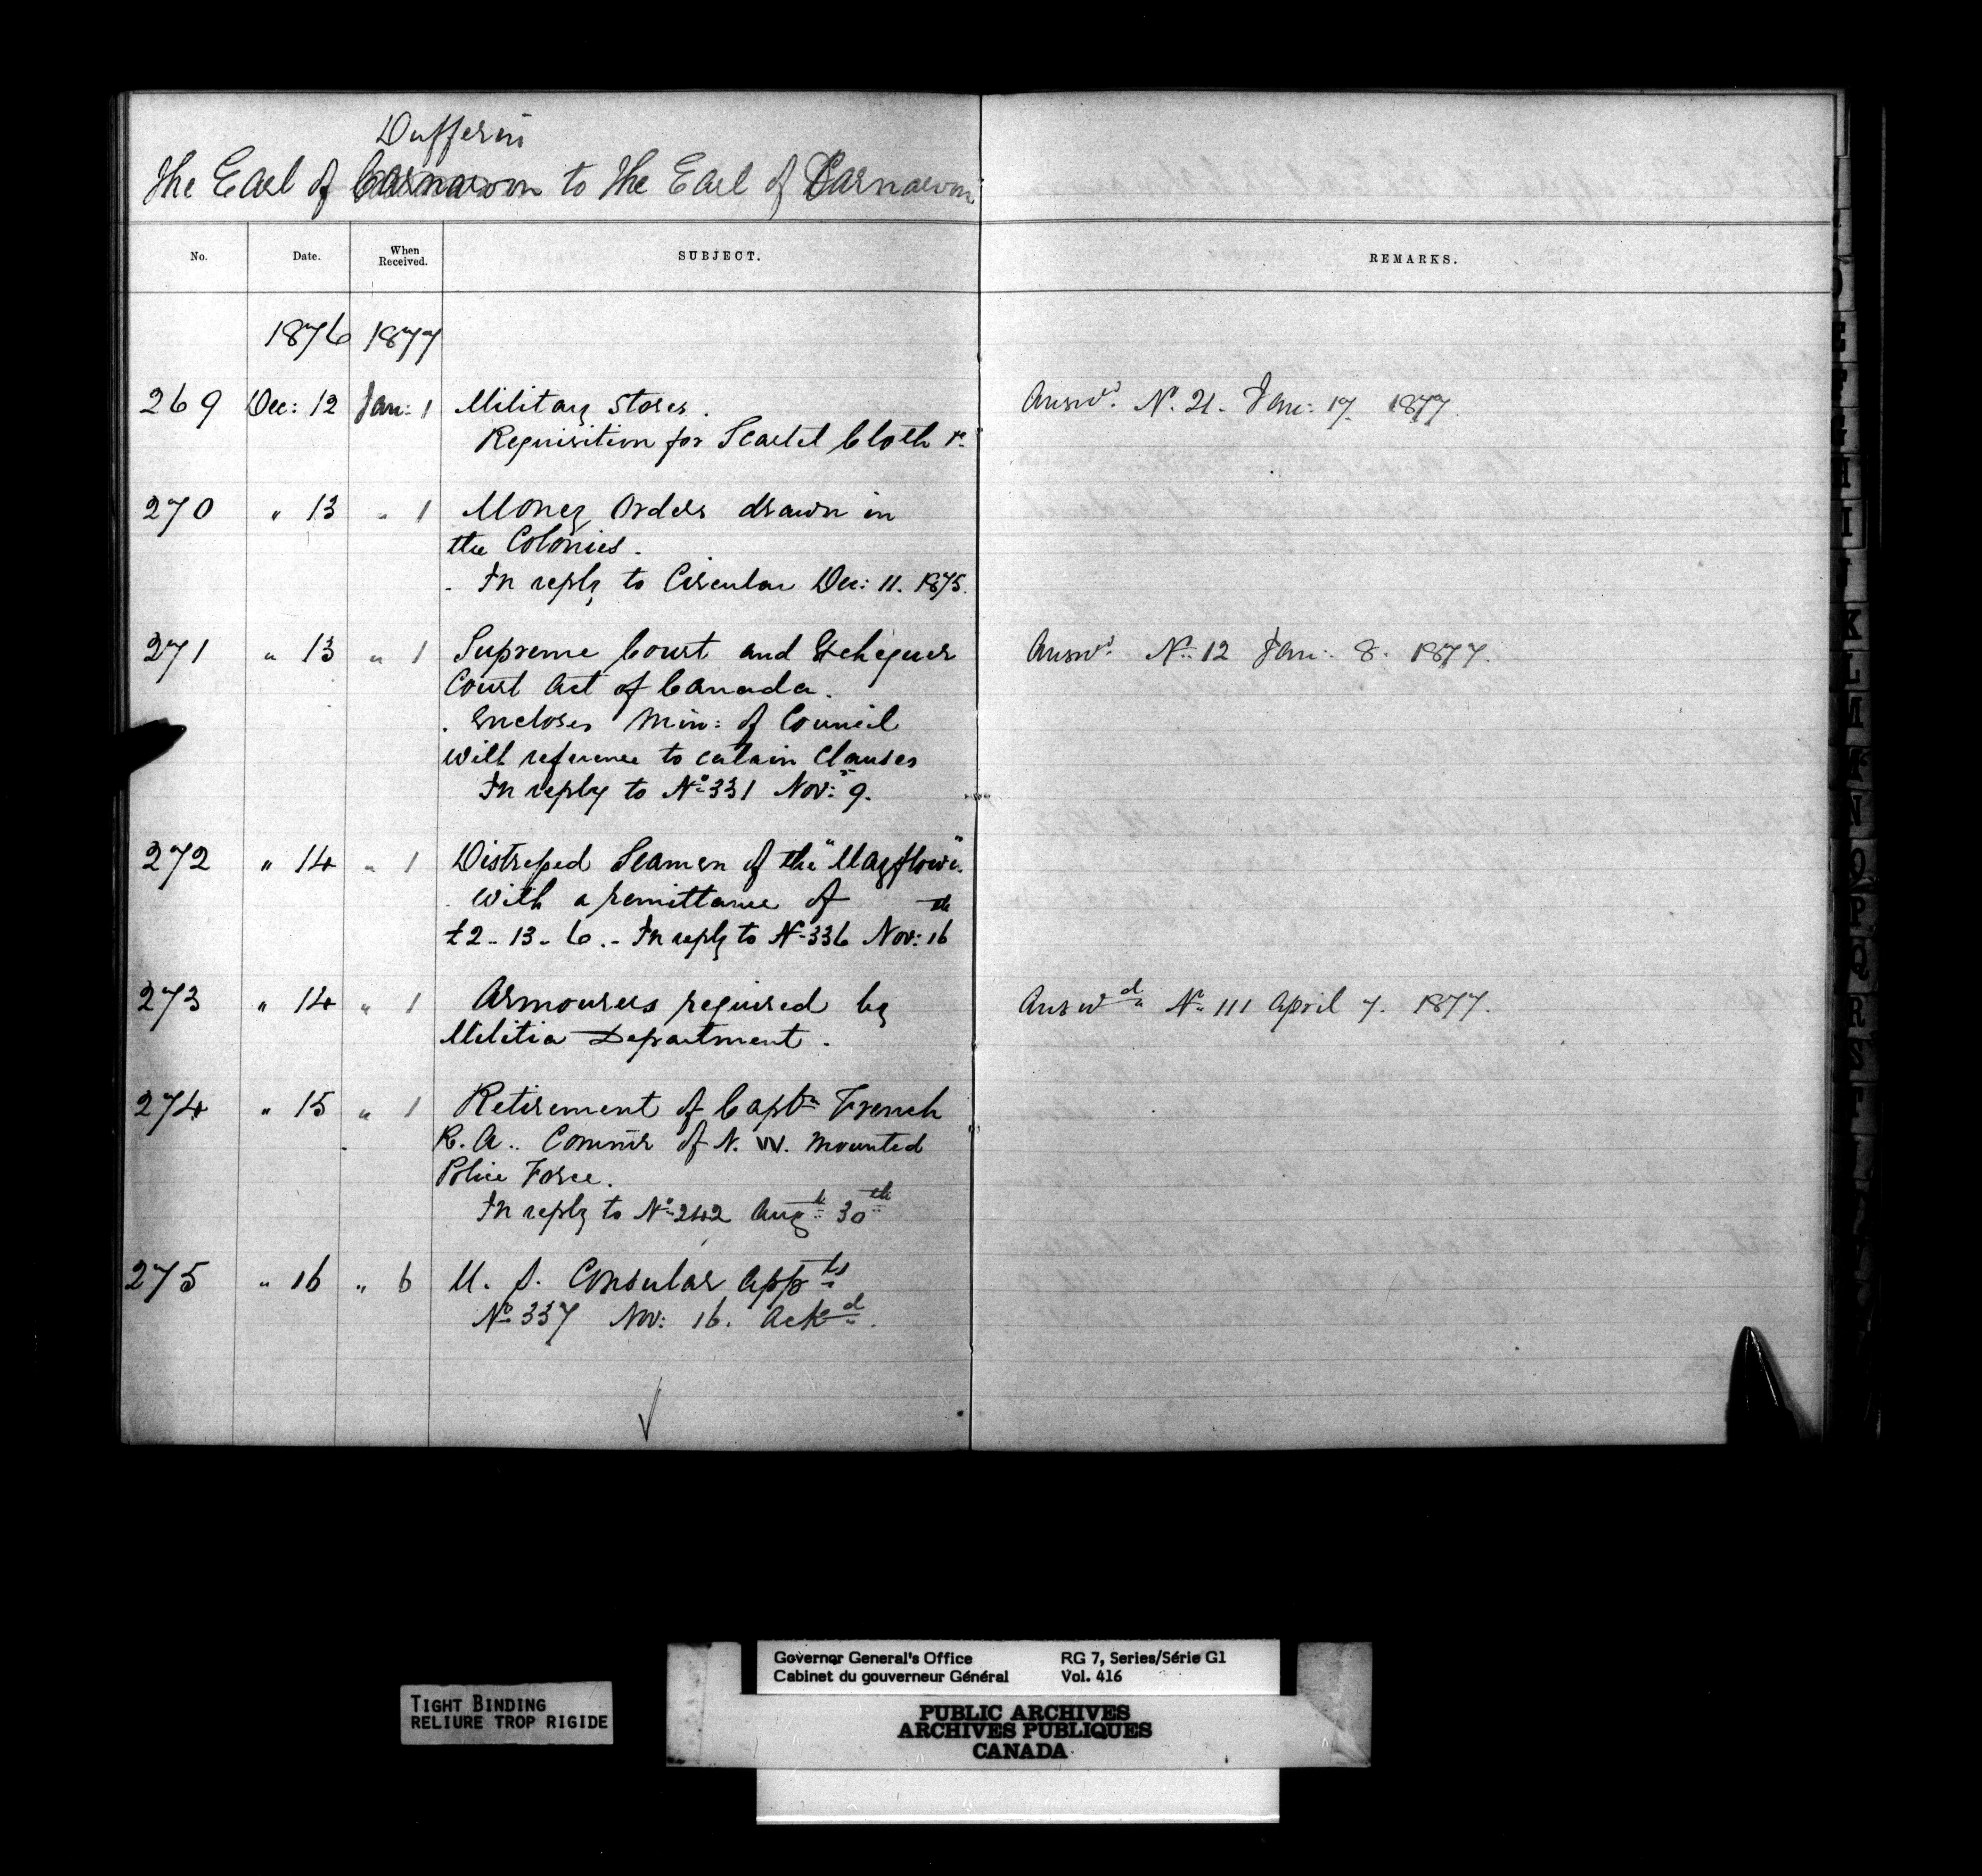 Dufferin
The Earl of Carnarvon to The Earl of Carnarvon
No. Date. When Received. SUBJECT. REMARKS.
1876 1877
269 Dec: 12 Jan: 1 Military Stores. Answd. No. 21. Jan: 17. 1877.
Requisition for Scarlet Cloth &c.
270 " 13 " 1 Money Orders drawn in
the Colonies.
. In reply to Circular Dec: 11. 1875.
271 " 13 " 1 Supreme Court and Exchequer Answd. No. 12 Jan: 8. 1877.
Court Act of Canada.
. Encloses Min: of Council
with reference to certain Clauses
In reply to No. 331 Nov: 9.
272 " 14 " 1 Distressed Seamen of the "Mayflower"
. With a remittance of
£2-13-6.- In reply to No. 336 Nov: 16th
273 " 14 " 1 Armourers required by Answd. No. 111 April 7. 1877.
Militia Department.
274 " 15 " 1 Retirement of Captn French
R.A.. Commr of N. W. Mounted
Police Force.
In reply to No. 242 Augt 30th
275 " 16 " 6 U. S. Consular Appts
No. 337 Nov: 16. Ackd.
Governor General's Office RG 7, Series/Série G1
Cabinet du gouverneur Général Vol. 416
TIGHT BINDING
RELIURE TROP RIGIDE
PUBLIC ARCHIVES
ARCHIVES PUBLIQUES
CANADA